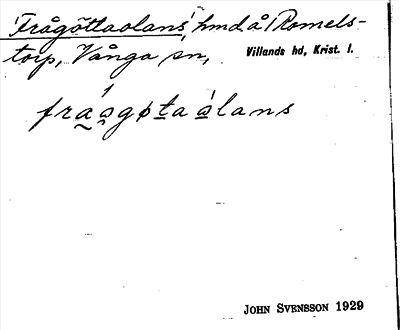 'Frågöttaolans', hmd å Romels-
torp, Vånga sn, Villands hd, Krist. l.
fraågøta ålans
JOHN SVENSSON 1929